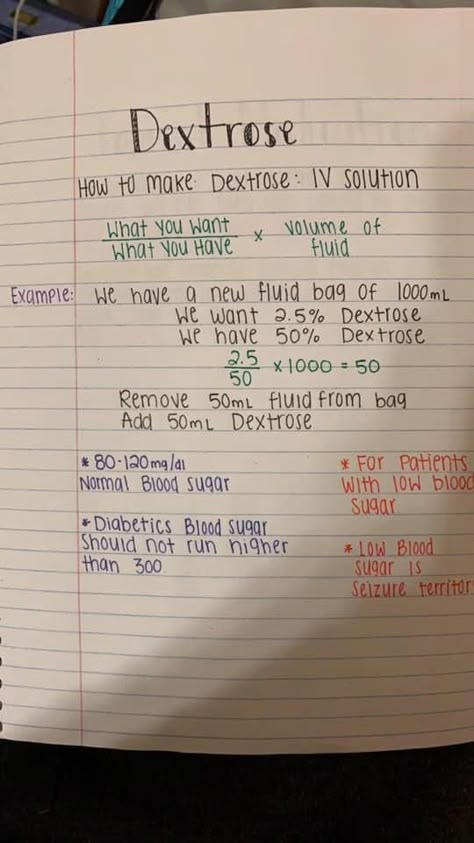 Dextrose
How to make Dextrose: IV solution
What you want
What you Have
x
volume of
fluid
Example: We have a new fluid bag of 1000mL
We want 2.5% Dextrose
We have 50% Dextrose
2.5
50
x 1000 = 50
Remove 50mL fluid from bag
Add 50mL Dextrose
* 80-120mg/dl
Normal Blood sugar
* Diabetics Blood sugar
should not run higher
than 300.
* For Patients
with low blood
sugar
* Low Blood
sugar is
seizure territor